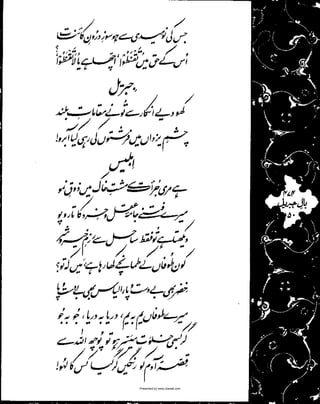 جس کی نومیدی سے ہو سوزِ درونِ کائنات
اس کے حق میں تقنطوا اچھا ہے یا لا تقنطوا
جبریل
کھو دیے انکار سے تو نے مقاماتِ بلند
چشمِ یزداں میں فرشتوں کی رہی کیا آبرو!
ابلیس
ہے مری جرأت سے مشتِ خاک میں ذوقِ نمو
میرے فتنے جامۂ عقل و خرد کا تار و پو
دیکھتا ہے تو فقط ساحل سے رزمِ خیر و شر
کون طوفاں کے طمانچے کھا رہا ہے، میں کہ تو؟
خضر بھی بے دست و پا، الیاس بھی بے دست و پا
میرے طوفاں یم بہ یم، دریا بہ دریا، جو بہ جو
گر کبھی خلوت میسر ہو تو پوچھ اللہ سے
قصۂ آدم کو رنگیں کر گیا کس کا لہو!
بالِ جبریل
Presented by